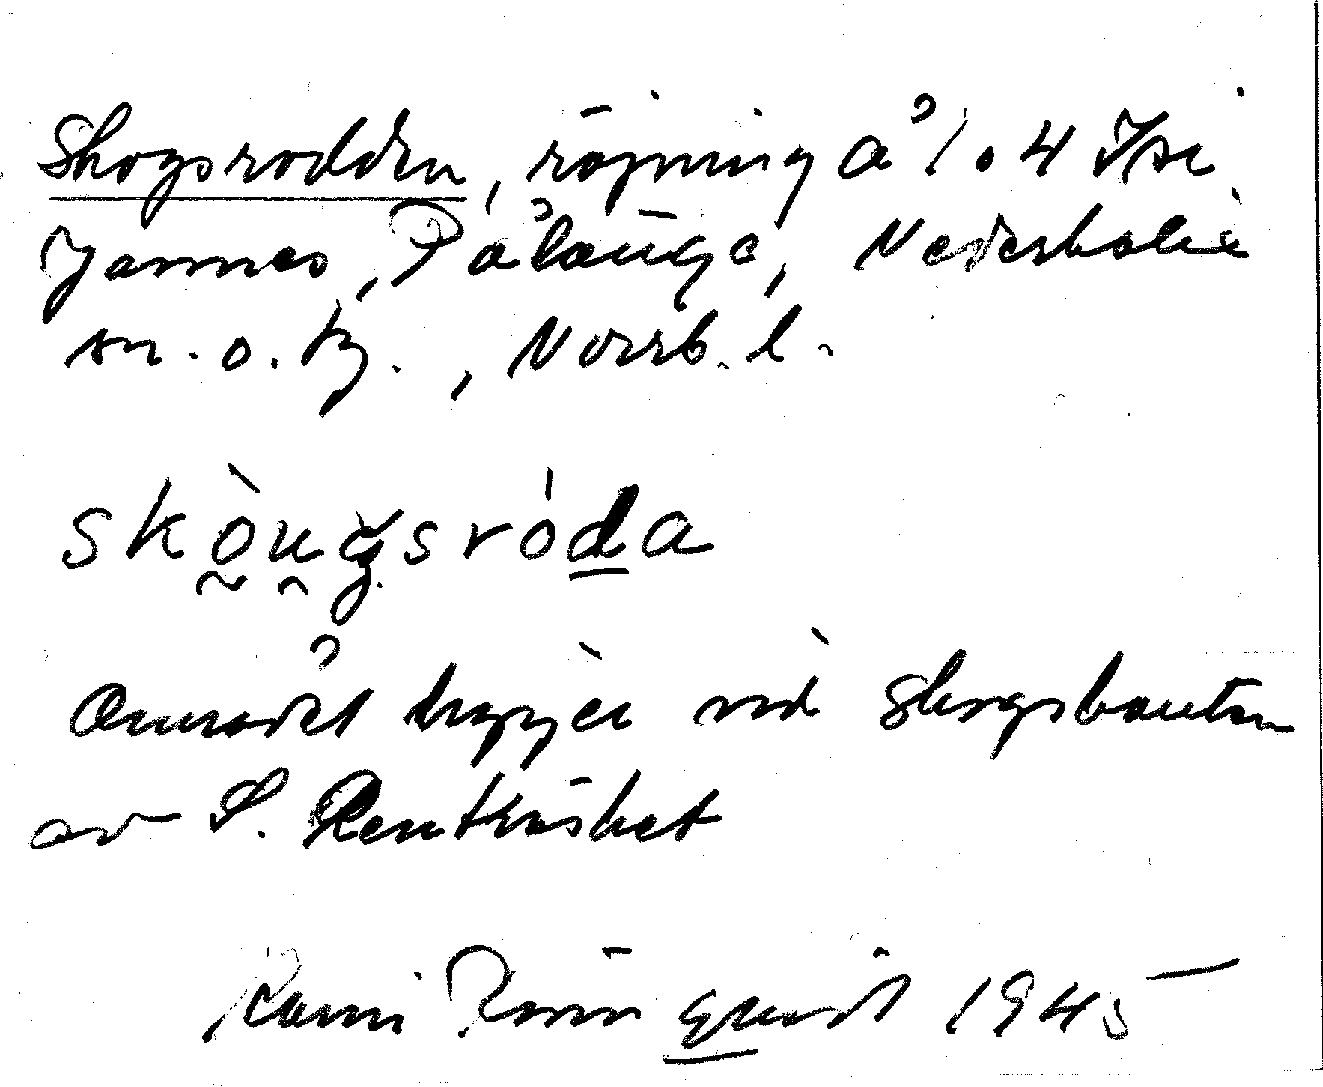 Skogsrodden, röjning å 1:4 Isi
Jannes, Pålänge, Nederkalix
sn. o. tg., Norrb. l.
skòugsróda
Området ligger vid skogskanten
av S. Renträsket
Karin Rönnquist 1945